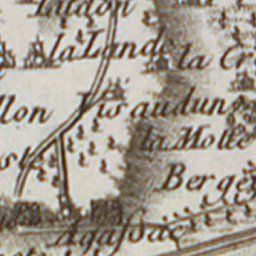 la Lande
la Cr
llon
Visaudun
la Molle
st
Berge
Agassac